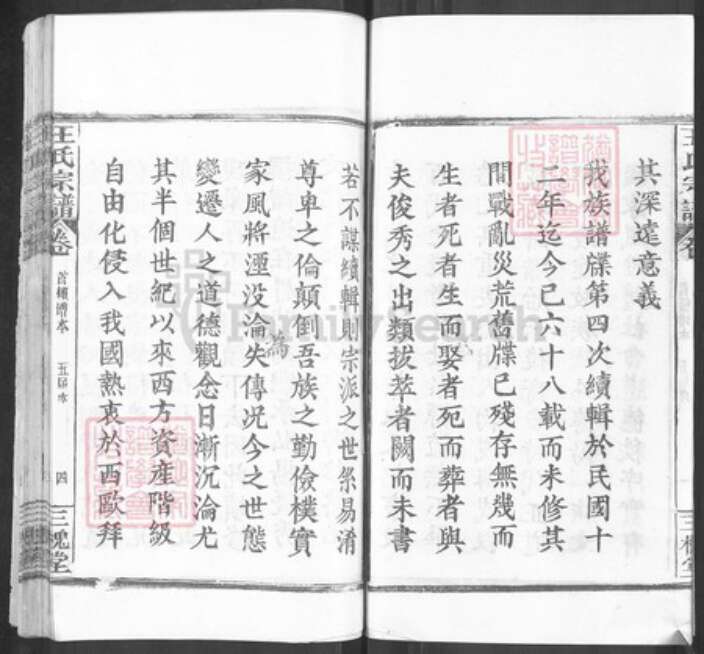 其深遠意義
我族譜牒第四次續輯於民國十
二年迄今已六十八載而未修其
間戰亂災荒舊牒已殘存無幾而
生者死者生而娶者死而葬者與
夫俊秀之出類拔萃者闕而未書
若不謀續輯則宗派之世系易淆
尊卑之倫顛倒吾族之勤儉樸實
家風將湮没淪失傳况今之世態
為
變遷人之道德觀念日漸沉淪尤
其半個世紀以來西方資產階級
自由化侵入我國熱衷於西歐拜
王氏宗譜
卷
首
譜本
五届本
四
三槐堂
王氏宗譜
卷
三槐堂
FamilySearch